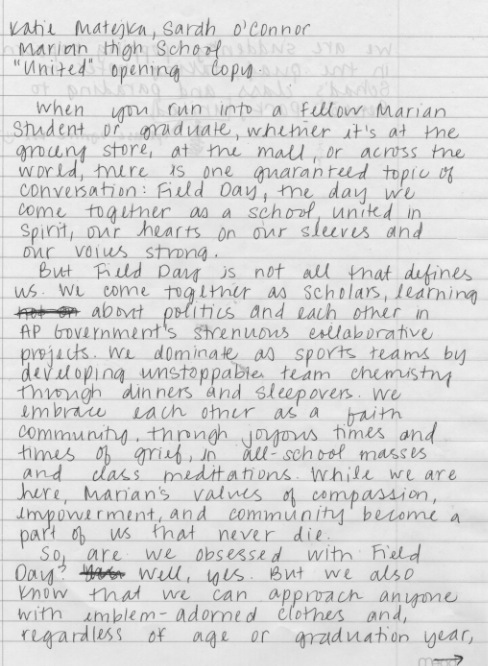 Katie Matejka, Sarah O'Connor
Marian High School
"United" opening copy
When you run into a fellow Marian
student or graduate, whether it's at the
grocery store, at the mall, or across the
world, there is one guaranteed topic of
conversation: Field Day, the day we
come together as a school, united in
spirit, our hearts on our sleeves and
our voices strong.
But Field Day is not all that defines
us. We come together as scholars, learning
about politics and each other in
AP Government's strenuous collaborative
projects. We dominate as sports teams by
developing unstoppable team chemistry
through dinners and sleepovers. We
embrace each other as a faith
community, through joyous times and
times of grief, in all-school masses
and class meditations. While we are
here, Marian's values of compassion,
empowerment, and community become a
part of us that never die.
So, are we obsessed with Field
Day? Well, yes. But we also
know that we can approach anyone
with emblem-adorned clothes and,
regardless of age or graduation year,